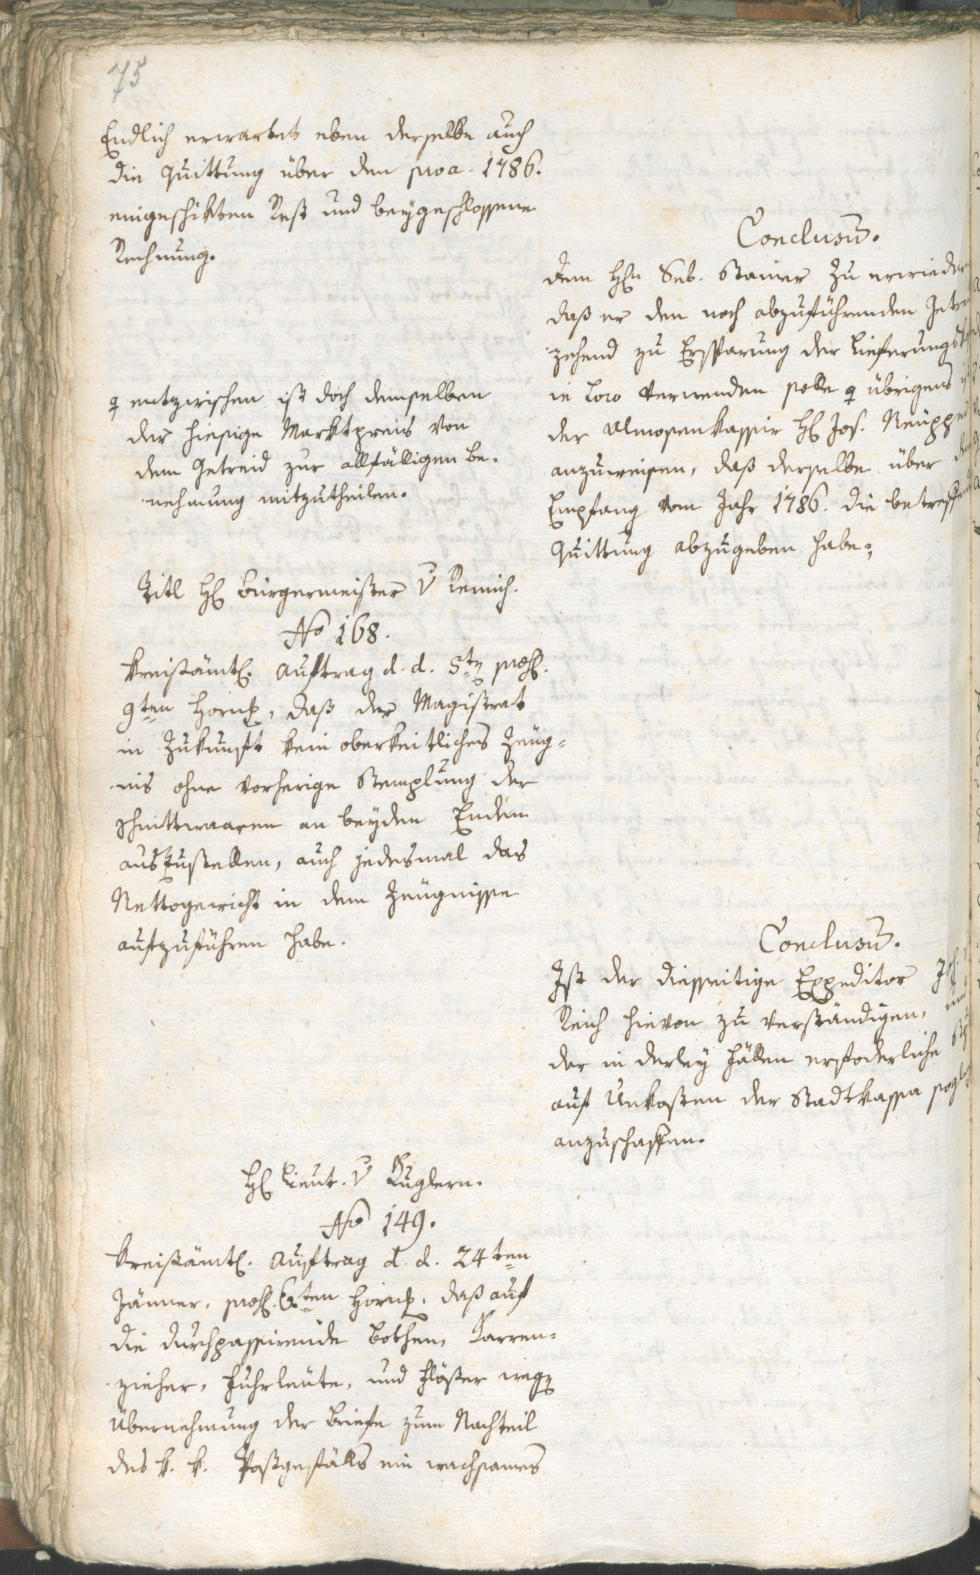 75
Endlich erwartet eben derselbe auch
die Quittung über den pro a. 1786.
eingeschikten Rest und beygeschlossene
Rechnung.
Conclusum.
dem H Seb. Stainer zu erwiedern
daß er den noch abzuführenden Getreid
zehend zu Ersparung der Lieferungs
in loco verwenden solle übrigens ist
der Almosenkassir H Jos.
anzuweisen, daß derselbe über den
Empfang vom Jahr 1786. die betreffende
Quittung abzugeben habe;
entzwischen ist doch demselben
der hiesige Marktpreis von
dem Getreid zur allfälligen Be-
nehmung mitzutheilen.
Titl H Bürgermeister v Remich.
No 168.
Kreisämtl. Auftrag d. d. 5t
9ten Hornung, daß der Magistrat
in Zukunft kein oberkeitliches Zeug-
nis ohne vorherige Stemplung der
Schnittwaaren an beyden Enden
auszustellen, auch jedesmal das
Nettogewicht in dem Zeugnisse
aufzuführen habe.
Conclusum.
Ist der diesseitige Expeditor Jos.
Reich hievon zu verständigen, und
der in derley Fällen erfoderliche
auf Unkosten der Stadtkassa sogleich
anzuschaffen.
H Lieut. v Kuglern.
No 149.
Kreisämtl. Auftrag d. d. 24ten
Jänner, 6ten Hornung, daß auf
die durchpassirende Bothen, Karren-
zieher, Fuhrleute, und Flösser weg
Übernehmung der Briefe zum Nachteil
des k. k. Postgefälls ein wachsames